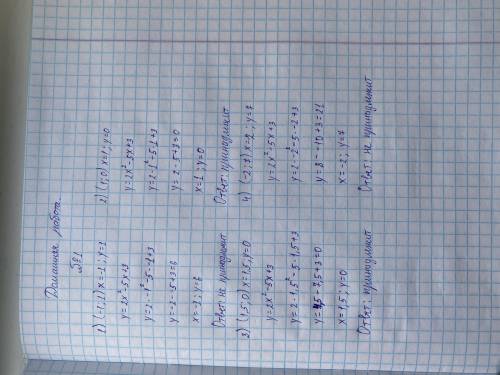 Домашняя работа.
№1
1) (-1; 2) x = -1; y = 2
y = 2x² - 5x + 3
y = 2 · -1² - 5 · -1 + 3
x = -1; y = 6
Ответ: не принадлежит
2) (1; 0) x = 1; y = 0
y = 2x² - 5x + 3
y = 2 · 1² - 5 · 1 + 3
y = 2 - 5 + 3 = 0
x = 1; y = 0
Ответ: принадлежит
3) (1,5; 0) x = 1,5; y = 0
y = 2x² - 5x + 3
y = 2 · 1,5² - 5 · 1,5 + 3
y = 4,5 - 7,5 + 3 = 0
x = 1,5; y = 0
Ответ: принадлежит
y = 2x² - 5x + 3
y = 8 - -10 + 3 = 21
x = -2; y = 7
Ответ: не принадлежит